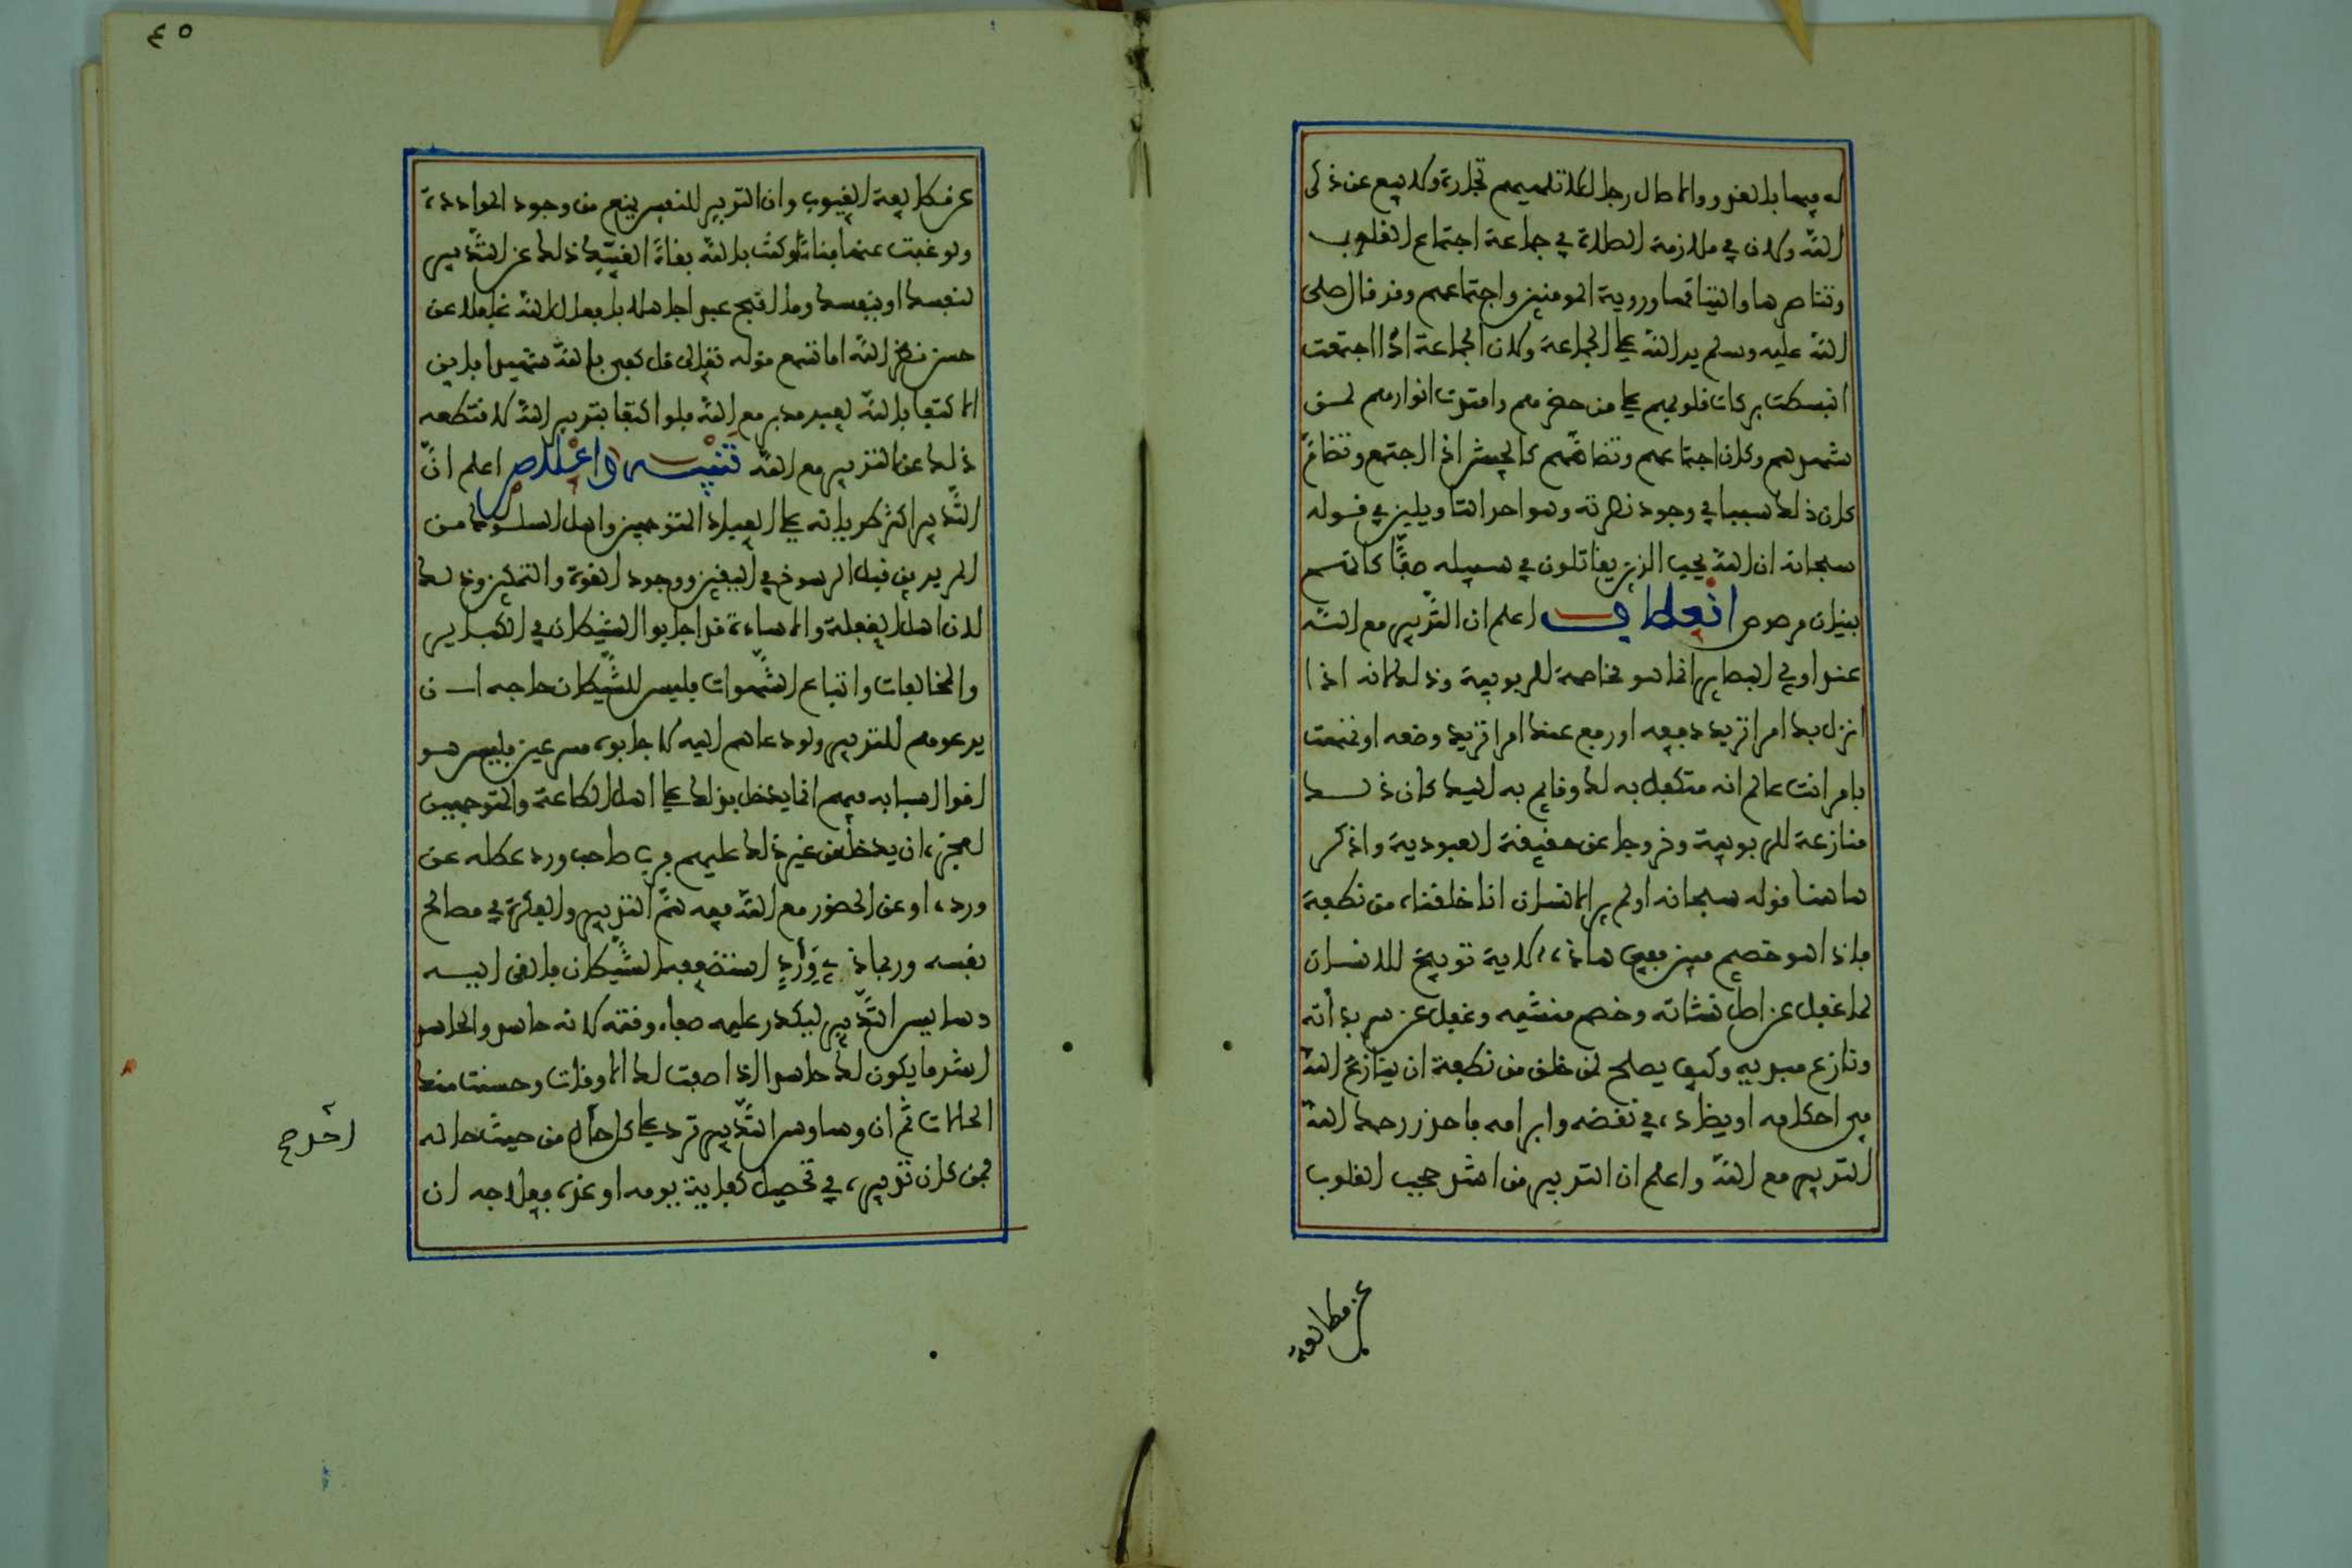 له فيها بالغدو والاصال رجال لا تلهيهم تجارة ولا بيع عن ذكر
الله ولان في ملازمة الصلاة في جماعة اجتماع القلوب
وتناصرها والتيامها وروية المومنين واجتماعهم وقد قال صلى
الله عليه وسلم يد الله على الجماعة ولان الجماعة اذا اجتمعت
انبسطت بركات قلوبهم على من حضرهم وامتدت انوارهم لمن
شهدهم وكان اجتماعهم وتضامهم كالجيش اذا اجتمع وتضام
كان ذلك سببا في وجود نصرته وهو احد التاويلين في قوله
سبحانه ان الله يحب الذين يقاتلون في سبيله صفا كانهم
بنيان مرصوص انعطاف اعلم ان التدبير مع الله
عند اولي البصاير انما هو مخاصمة للربوبية وذلك لانه اذا
انزل بك امرا تريد دفعه او رفع عنك امرا تريد وضعه او تهممت
بامر انت عالم انه متكفل به لك وقايم به اليك كان ذلك
منازعة للربوبية وخروجا عن حقيقة العبودية واذكر
هاهنا قوله سبحانه اولم ير الانسان انا خلقناه من نطفة
فاذا هو خصيم مبين ففي هاذه الاية توبيخ للانسان
لما غفل عن اصل نشاته وخصم منشيه وغفل عن سر بدأته
ونازع مبديه وكيف يصلح لمن خلق من نطفة ان ينازع الله
في احكامه او يضاده في نقضه وابرامه فاحذر رحمك الله
التدبير مع الله واعلم ان التدبير من اشد حجب القلوب
عن مطالعة
٤٥
عن مطالعة الغيوب وان التدبير للنفس ينبع من وجود الموادة
ولو غبت عنها فناء وكنت بالله بقاء لغيبك ذلك عن التدبير
لنفسك او بنفسك وما اقبح عبدا جاهلا بافعال الله غافلا عن
حسن نظر الله اما تسمع قوله تعالى قل كفى بالله شهيدا فاين
الاكتفا بالله لعبد مدبر مع الله فلو اكتفا بتدبير الله لاقتطعه
ذلك عن التدبير مع الله تنبيه واعلام اعلم ان
التدبير اكثر طريانه على العباد المتوجهين واهل السلوك من
المريدين قبل الرسوخ في اليقين ووجود القوة والتمكين وذلك
لان اهل الغفلة والاساءة قد اجابوا الشيطان في الكباير
والمخالفات واتباع الشهوات فليس للشيطان حاجه ان
يدعوهم للتدبير ولو دعاهم اليه لاجابوه مسرعين فليس هو
اقوا اسبابه فيهم انما يدخل بذلك على اهل الطاعة والمتوجهين
لعجزه ان يدخل من غير ذلك عليهم فرب صاحب ورد عطله عن
ورده او عن الحضور مع الله فيه هم التدبير والفكرة في مصالح
نفسه وربما ذي ورد استضعفه الشيطان فالقى اليه
دسايس التدبير ليكدر عليه صفاء وقته لانه حاسد والحاسد
اشد ما يكون لك حاسدا اذا صفت لك الاوقات وحسنت منك
الحالات ثم ان وساوس التدبير ترد على كل احد من حيث حاله
فمن كان تدبيره في تحصيل كفاية يومه او غده فعلاجه ان
احد صح